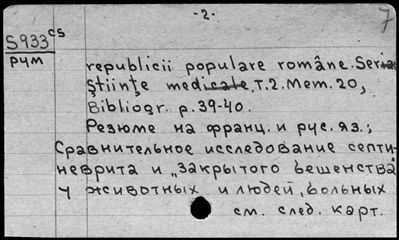 -2.
7
S933cs
рум
republicii populare române. Seria
Ştiinţe medicale. T.2. Mem. 20,
Bibliogr. p. 39-40.
Резюме на франц. и рус. яз.;
Сравнительное исследование септи-
неврита и „закрытого бешенства"
у животных и людей, больных
см. след. карт.